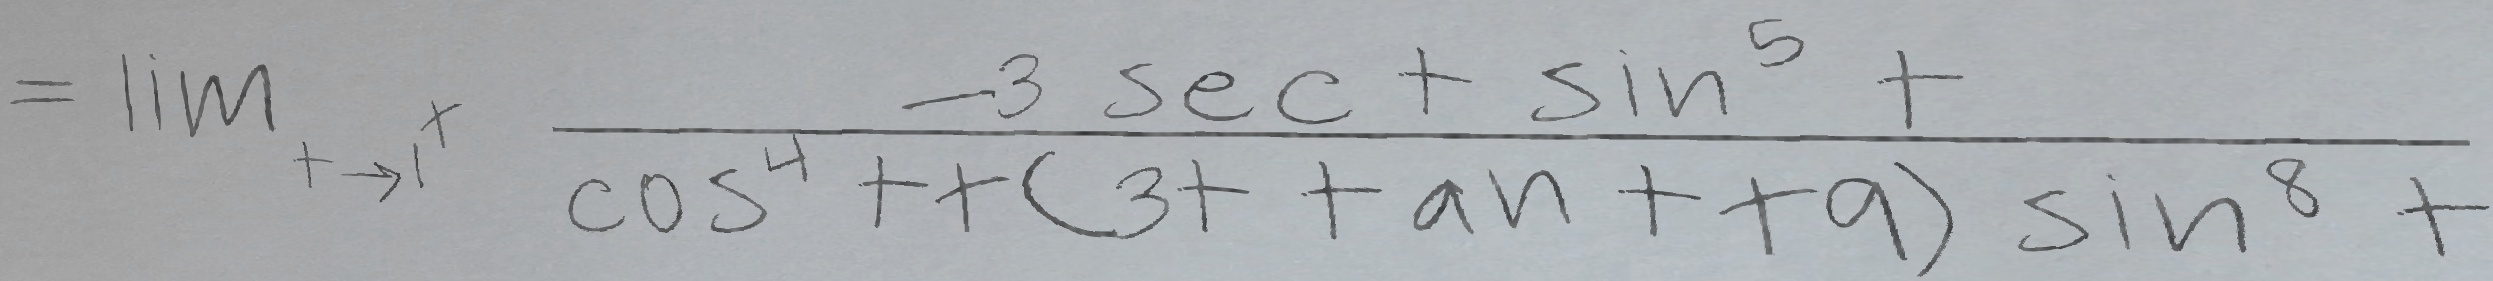 = lim_{t→1^+} \frac{-3 sec t sin^5 t}{cos^4 t + (3t tan t + 9) sin^8 t}